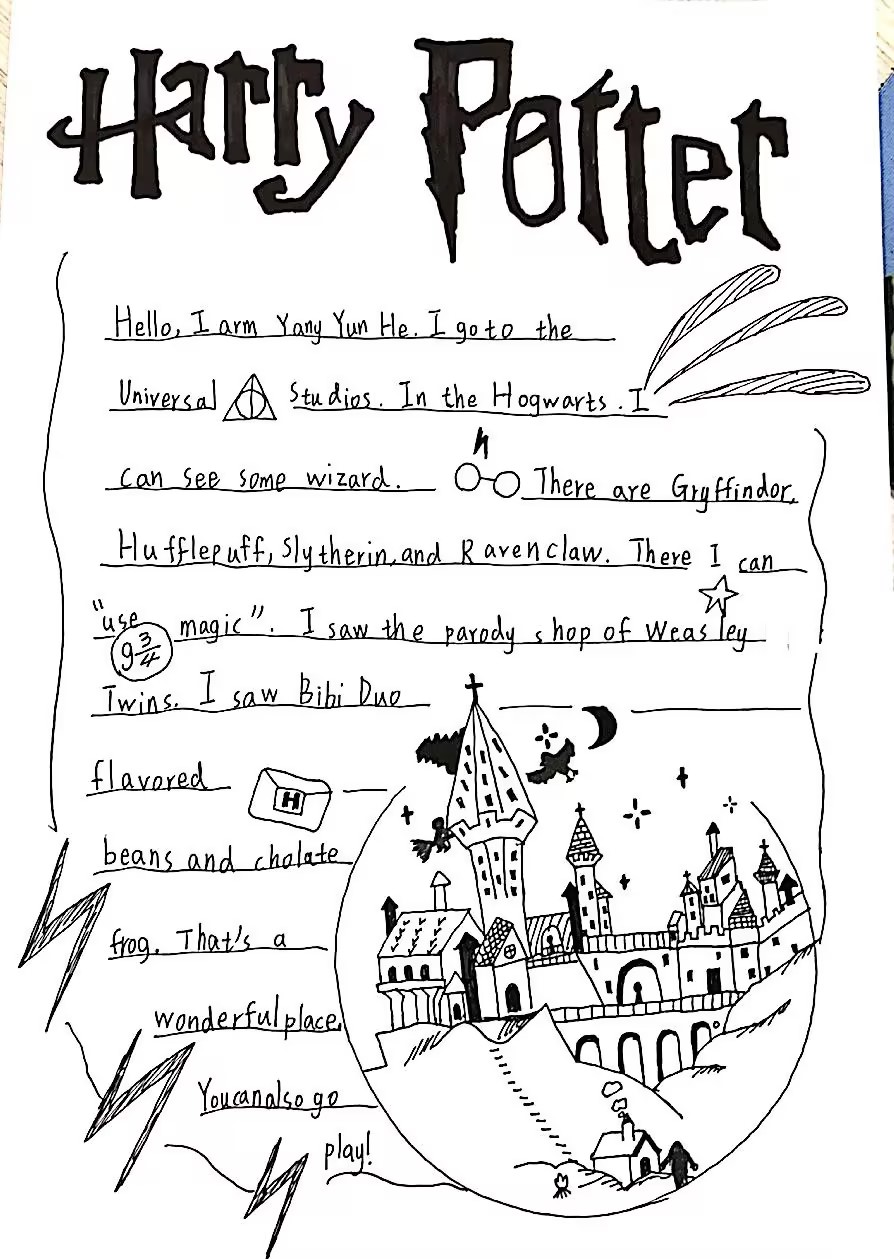 Harry Potter
Hello, I arm Yang Yun He. I go to the
Universal Studios. In the Hogwarts. I
can see some wizard. There are Gryffindor,
Hufflepuff, Slytherin, and Ravenclaw. There I can
"use magic". I saw the parody shop of Weasley
9 3/4
Twins. I saw Bibi Duo
flavored
H
beans and cholate
frog. That's a
wonderful place.
You can also go
play!